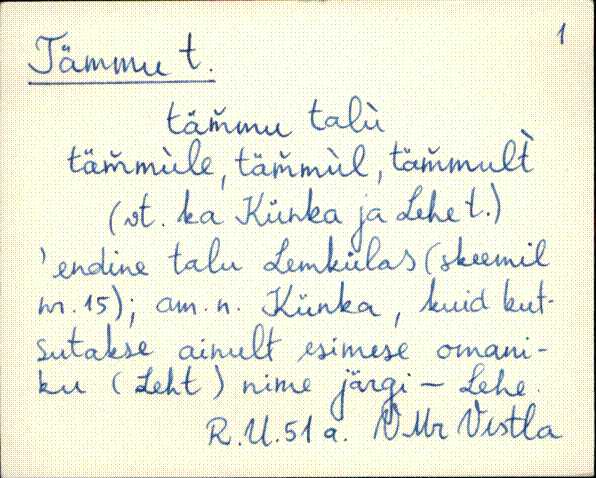 1
Tämmu t.
täm̆mu talù
täm̆mùle, täm̆mùl, täm̆mult̀
(vt. ka Künka ja Lehe t.)
'endine talu Lemkülas (skeemil
nr. 15); am. n. Künka, kuid kut-
sutakse ainult esimese omani-
ku (Leht) nime järgi – Lehe.
R.U. 51 a. VMr Vistla